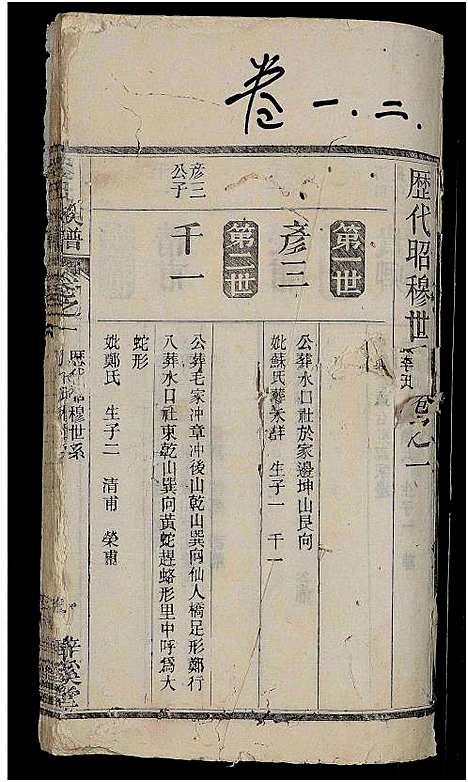 卷一.二.
歷代昭穆世
卷一
第一世
彥三
公葬水口社於家邊坤山艮向
妣蘇氏葬衣群 生子一 千一
第二世
彥三公子
千一
公葬毛家冲章冲後山乾山巽向仙人橋足形鄭行
八葬水口社東乾山巽向黃蛇趕蛒形里中呼為大
蛇形
妣鄭氏 生子二 清甫 榮甫
氏族譜
卷之一
歷代昭穆世系